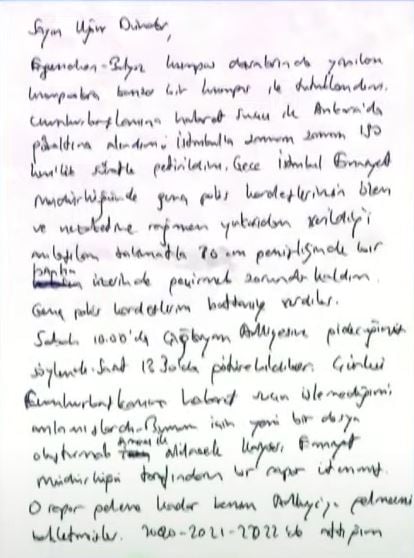 Sayın Uğur Dündar,
Ergenekon-Balyoz kumpas davalarında yapılan
kumpaslara benzer bir kumpas ile tutuklandım.
Cumhurbaşkanına hakaret suçu ile Ankara'da
gözaltına alındım; İstanbul'a zaman zaman 190
km'lik süratle getirildim. Gece İstanbul Emniyet
Müdürlüğünde genç polis kardeşlerimin özen
ve nezaketine rağmen yukarıdan verildiği
anlaşılan talimatla 70 cm genişliğinde bir
üzerinde geçirmek zorunda kaldım.
Genç polis kardeşlerim battaniye verdiler.
Sabah 10.00'da Çağlayan Adliyesine gideceğimiz
söylendi. Saat 13.30'da götürebildiler. Çünkü
Cumhurbaşkanına hakaret suçu işlemediğimi
anlamışlardı. Bunun için yeni bir dosya
oluşturmak Emniyet
Müdürlüğü tarafından bir rapor istenmiş.
O rapor gelene kadar benim Adliye'ye gelmemi
bekletmişler. 2020-2021-2022'de attığım